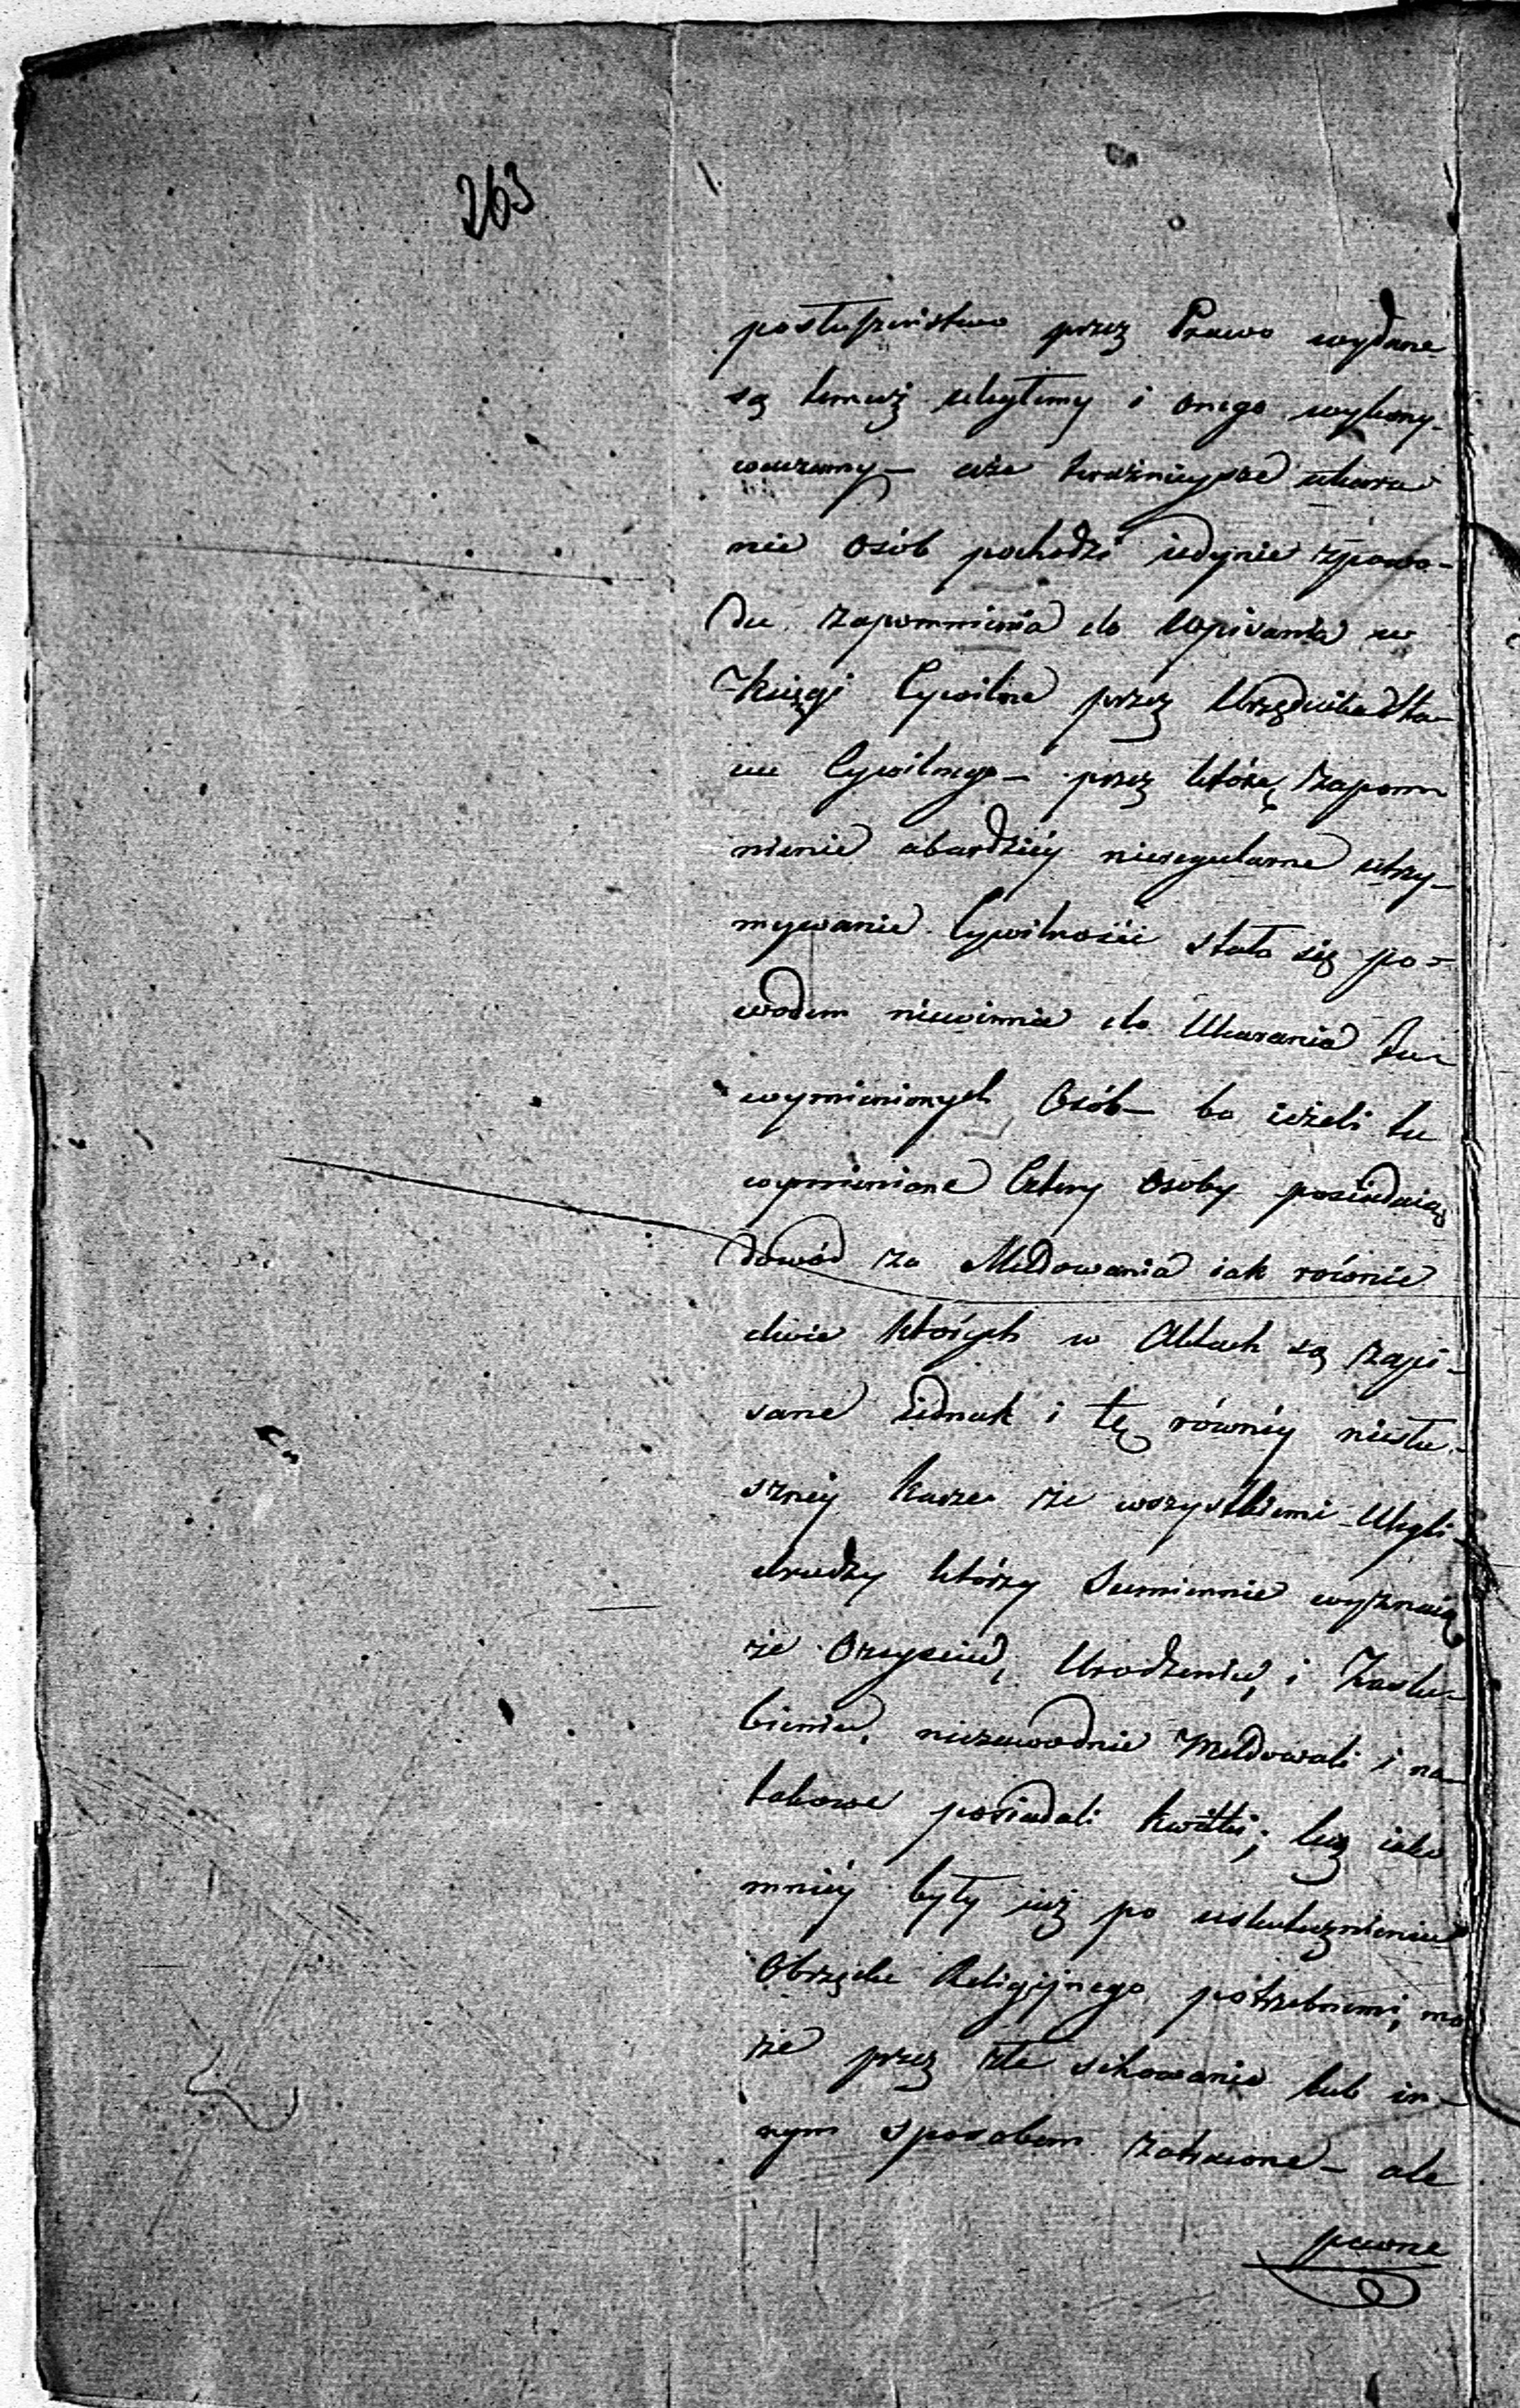 263
posłuszeństwo przez Prawo wydane
są temuż uległemy i onego wykony-
waiemy – aże teraźnieysze ukara
nie osób pochodzi iedynie zpowo-
du zapomnienia do Wpisania w
Księgi Cywilne przez Urzędnika Sta-
nu Cywilnego – przez którę zapom
nienie abardźiéy nieregularne utrzy-
mywanie Cywilności stało się po-
wodem niewinnie do Ukarania tu-
wymienionych Osób – bo ieżeli tu
wymienione Cztery osoby posiadaią
dowód za Meldowania iak równie
dwie których w Aktach są zapi-
sane iednak i tę równéy niesłu-
szney karze ze wszystkiemi Ulegli
którzy Sumiennie wyznaią
że Urodzeniu, i Zaślu-
bieniu, niezawodnie Meldowali i na
takowe posiadali kwitki; lecz iako
mniéy były iuż po uskutecznieniu
Obrzędu Religijnego potrzebnemi, mo
że przez złe schowanie lub in-
nym sposobem zatracone – ale
pewne